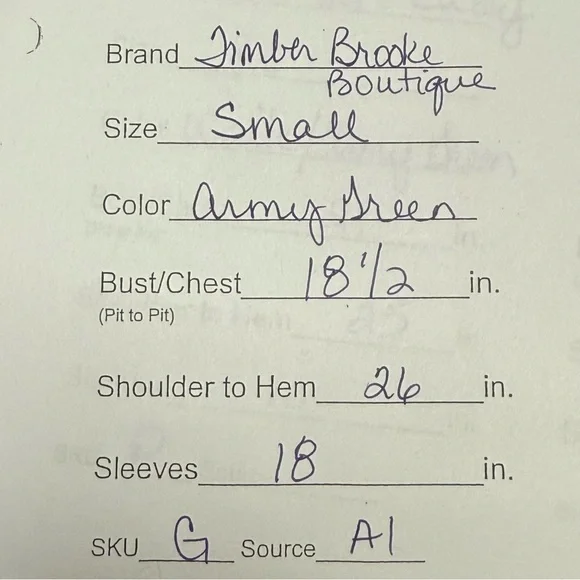 Brand Timber Brooke
Boutique
Size Small
Color Army Green
Bust/Chest 18 1/2 in.
(Pit to Pit)
Shoulder to Hem 26 in.
Sleeves 18 in.
SKU G Source A1